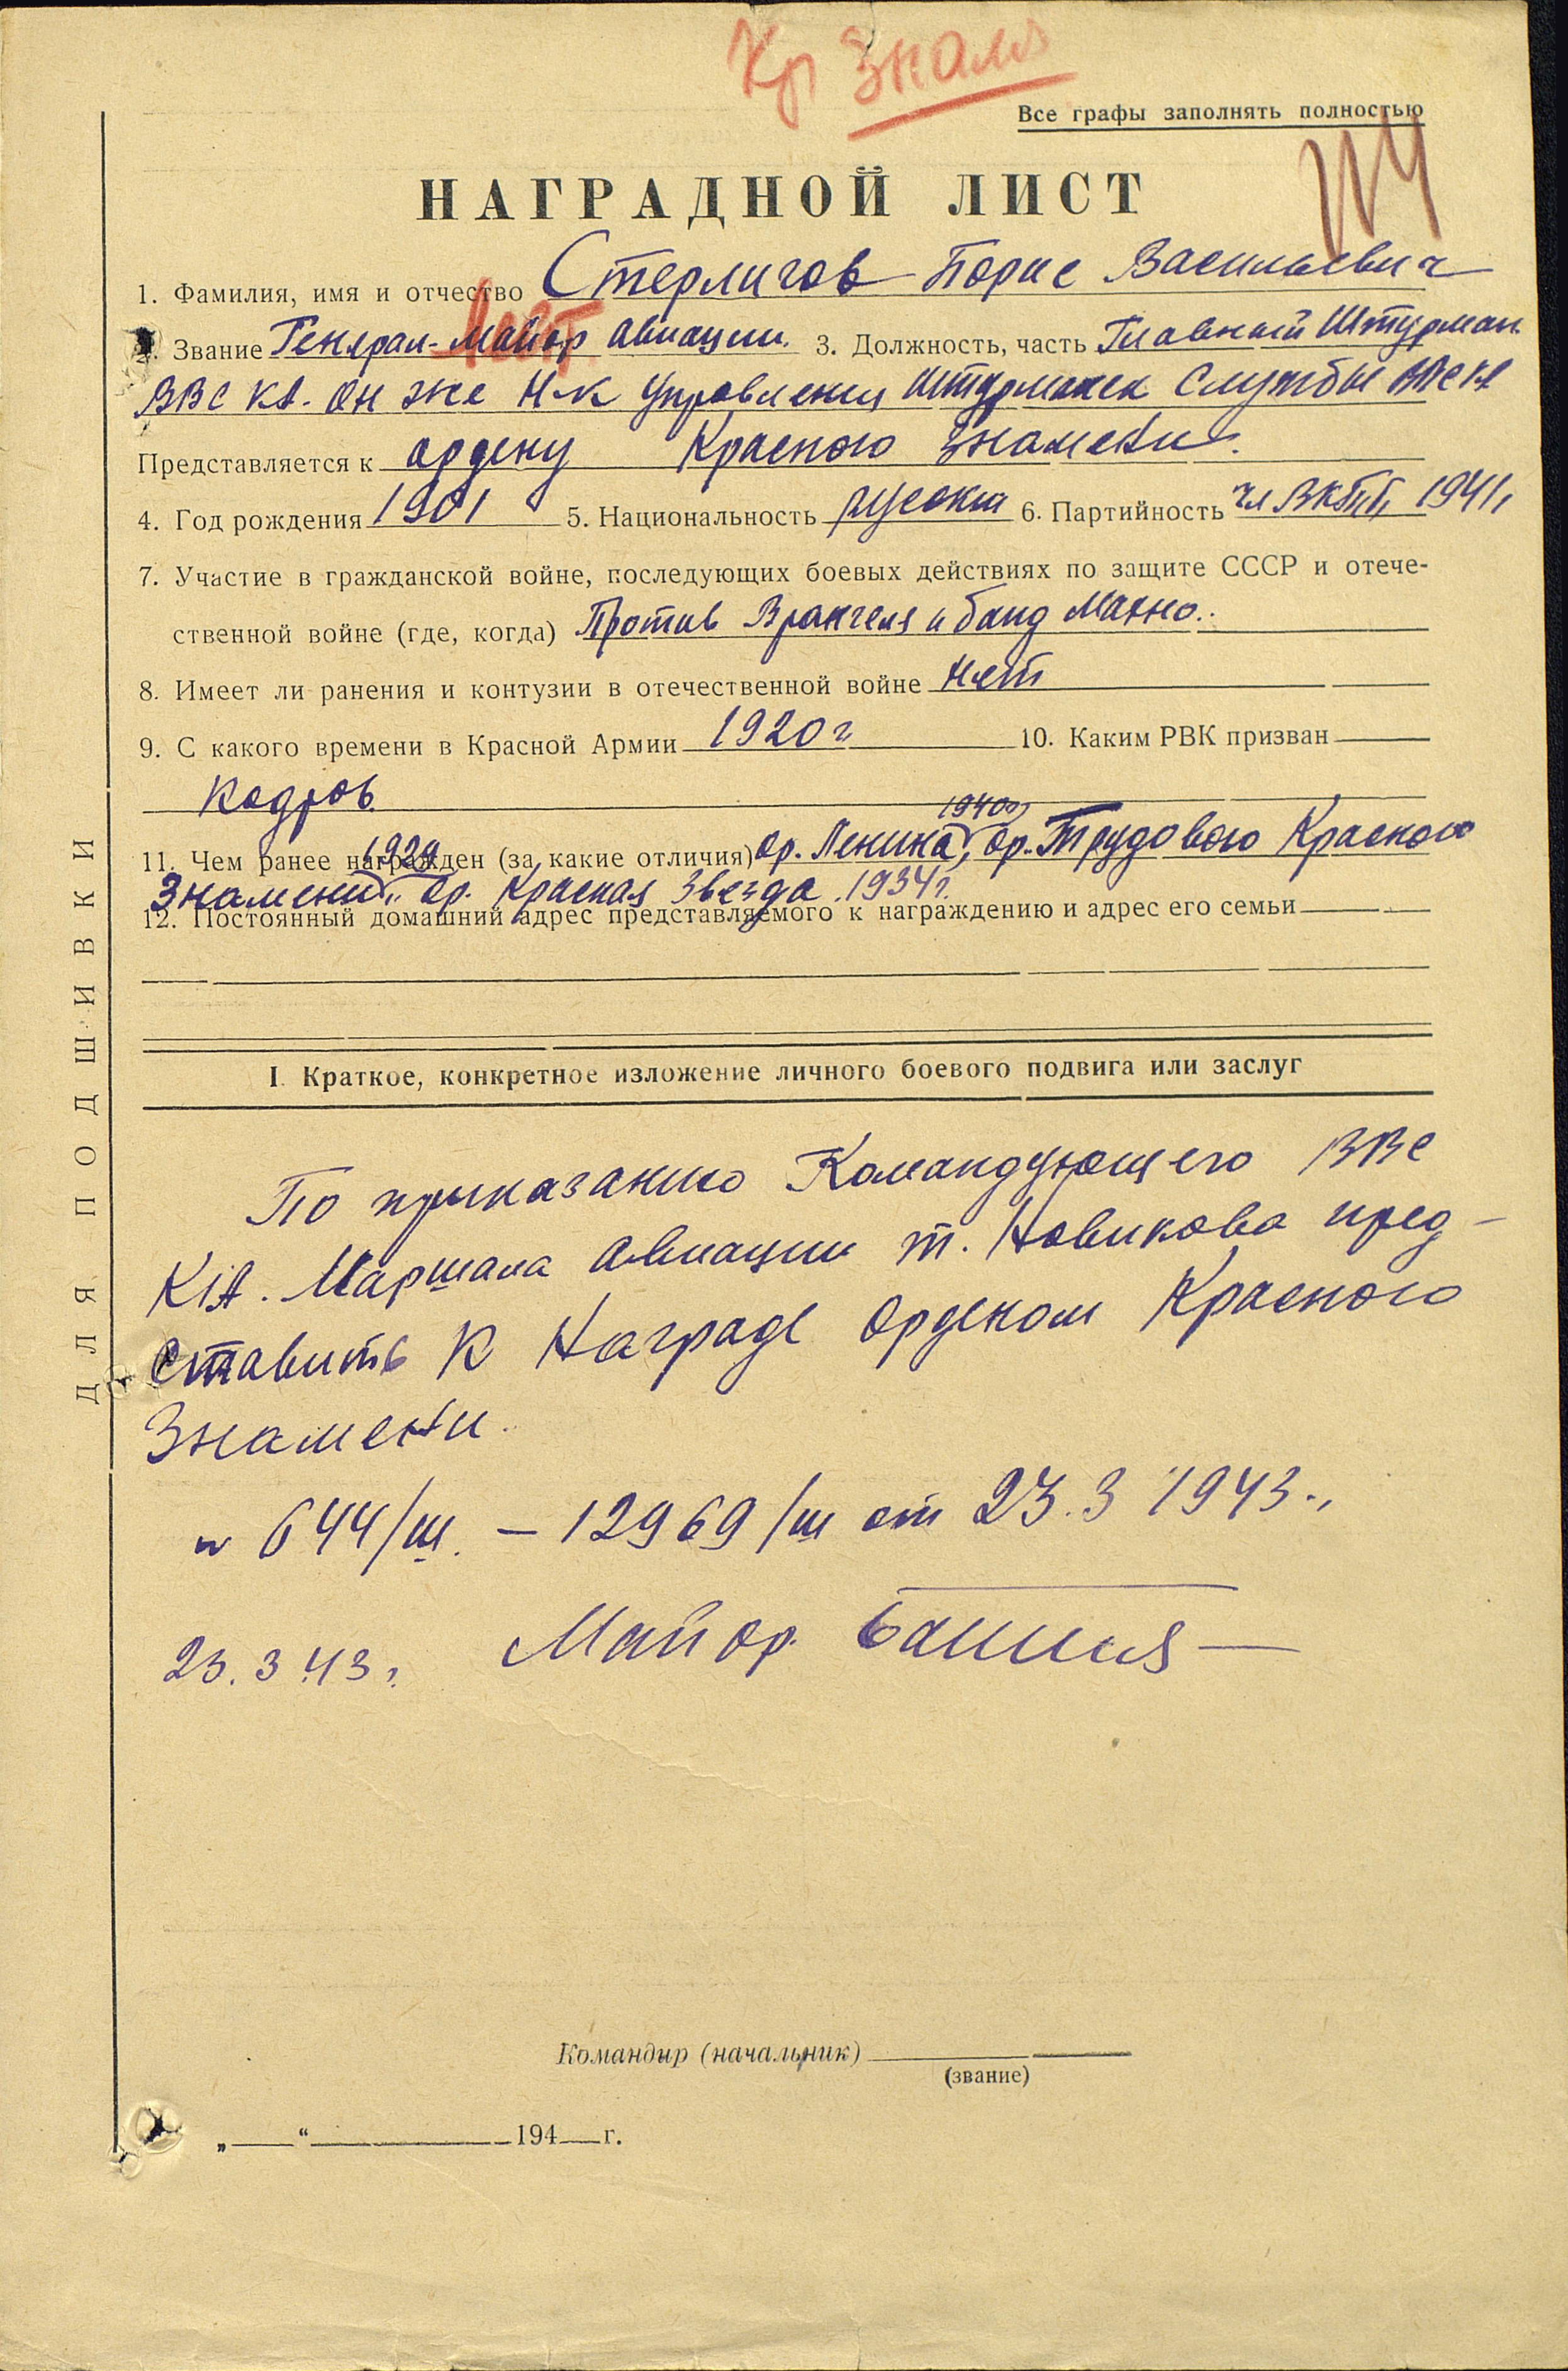 Кр Знамя
Все графы заполнять полностью
НАГРАДНОЙ ЛИСТ
1. Фамилия, имя и отчество Стерлигов Борис Васильевич
2. Звание Генерал-Майор Авиации. 3. Должность, часть Главный Штурман
лейт
ВВС КА. Он же Н-к Управления Штурманск Службы ВВС КА
Представляется к ордену Красного Знамени.
4. Год рождения 1901 5. Национальность русский 6. Партийность чл ВКП/б/ 1941г
7. Участие в гражданской войне, последующих боевых действиях по защите СССР и отече-
ственной войне (где, когда) Против Врангеля и банд Махно.
8. Имеет ли ранения и контузии в отечественной войне нет
9. С какого времени в Красной Армии 1920 г 10. Каким РВК призван
Кадров.
1940г
11. Чем ранее награжден (за какие отличия) Ор. Ленина, ор. Трудового Красного
1929
Знамени, ор. Красная Звезда. 1934г.
12. Постоянный домашний адрес представляемого к награждению и адрес его семьи
I. Краткое, конкретное изложение личного боевого подвига или заслуг
По приказанию Командующего ВВС
КА. Маршала Авиации т. Новикова пред-
ставить к Награде Орденом Красного
Знамени.
644/ш. – 12969/ш от 23.3 1943.,
23.3.43г. Майор
Командир (начальник)
(звание)
„ “ 194 г.
ДЛЯ ПОДШИВКИ